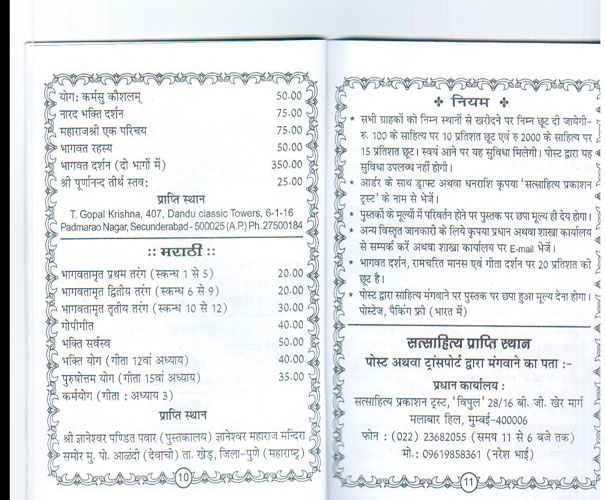 योग: कर्मसु कौशलम् 50.00
नारद भक्ति दर्शन 75.00
महाराजश्री एक परिचय 75.00
भागवत रहस्य 50.00
भागवत दर्शन (दो भागों में) 350.00
श्री पूर्णानन्द तीर्थ स्तव: 25.00
प्राप्ति स्थान
T. Gopal Krishna, 407, Dandu classic Towers, 6-1-16
Padmarao Nagar, Secunderabad - 500025 (A.P.) Ph.27500184
:: मराठी ::
भागवतामृत प्रथम तरंग (स्कन्ध 1 से 5) 20.00
भागवतामृत द्वितीय तरंग (स्कन्ध 6 से 9) 20.00
भागवतामृत तृतीय तरंग (स्कन्ध 10 से 12) 30.00
गोपीगीत 40.00
भक्ति सर्वस्व 50.00
भक्ति योग (गीता 12वां अध्याय) 40.00
पुरुषोत्तम योग (गीता 15वां अध्याय) 35.00
कर्मयोग (गीता : अध्याय 3)
प्राप्ति स्थान
श्री ज्ञानेश्वर पण्डित पवार (पुस्तकालय) ज्ञानेश्वर महाराज मन्दिरा
समोर मु. पो. आळंदी (देवाची) ता. खेड़, जिला-पुणे (महाराष्ट्र)
10
नियम
* सभी ग्राहकों को निम्न स्थानों से खरीदने पर निम्न छूट दी जायेगी-
रु. 100 के साहित्य पर 10 प्रतिशत छूट एवं रु 2000 के साहित्य पर
15 प्रतिशत छूट। स्वयं आने पर यह सुविधा मिलेगी। पोस्ट द्वारा यह
सुविधा उपलब्ध नहीं होगी।
* आर्डर के साथ ड्राफ्ट अथवा धनराशि कृपया 'सत्साहित्य प्रकाशन
ट्रस्ट' के नाम से भेजें।
* पुस्तकों के मूल्यों में परिवर्तन होने पर पुस्तक पर छपा मूल्य ही देय होगा।
* अन्य विस्तृत जानकारी के लिये कृपया प्रधान अथवा शाखा कार्यालय
से सम्पर्क करें अथवा शाखा कार्यालय पर E-mail भेजें।
* भागवत दर्शन, रामचरित मानस एवं गीता दर्शन पर 20 प्रतिशत की
छूट है।
* पोस्ट द्वारा साहित्य मंगवाने पर पुस्तक पर छपा हुआ मूल्य देना होगा।
पोस्टेज, पैकिंग फ्री (भारत में)
सत्साहित्य प्राप्ति स्थान
पोस्ट अथवा ट्रांसपोर्ट द्वारा मंगवाने का पता :-
प्रधान कार्यालय :
सत्साहित्य प्रकाशन ट्रस्ट, 'विपुल' 28/16 बी. जी. खेर मार्ग
मलाबार हिल, मुम्बई-400006
फोन : (022) 23682055 (समय 11 से 6 बजे तक)
मो.: 09619858361 (नरेश भाई)
11